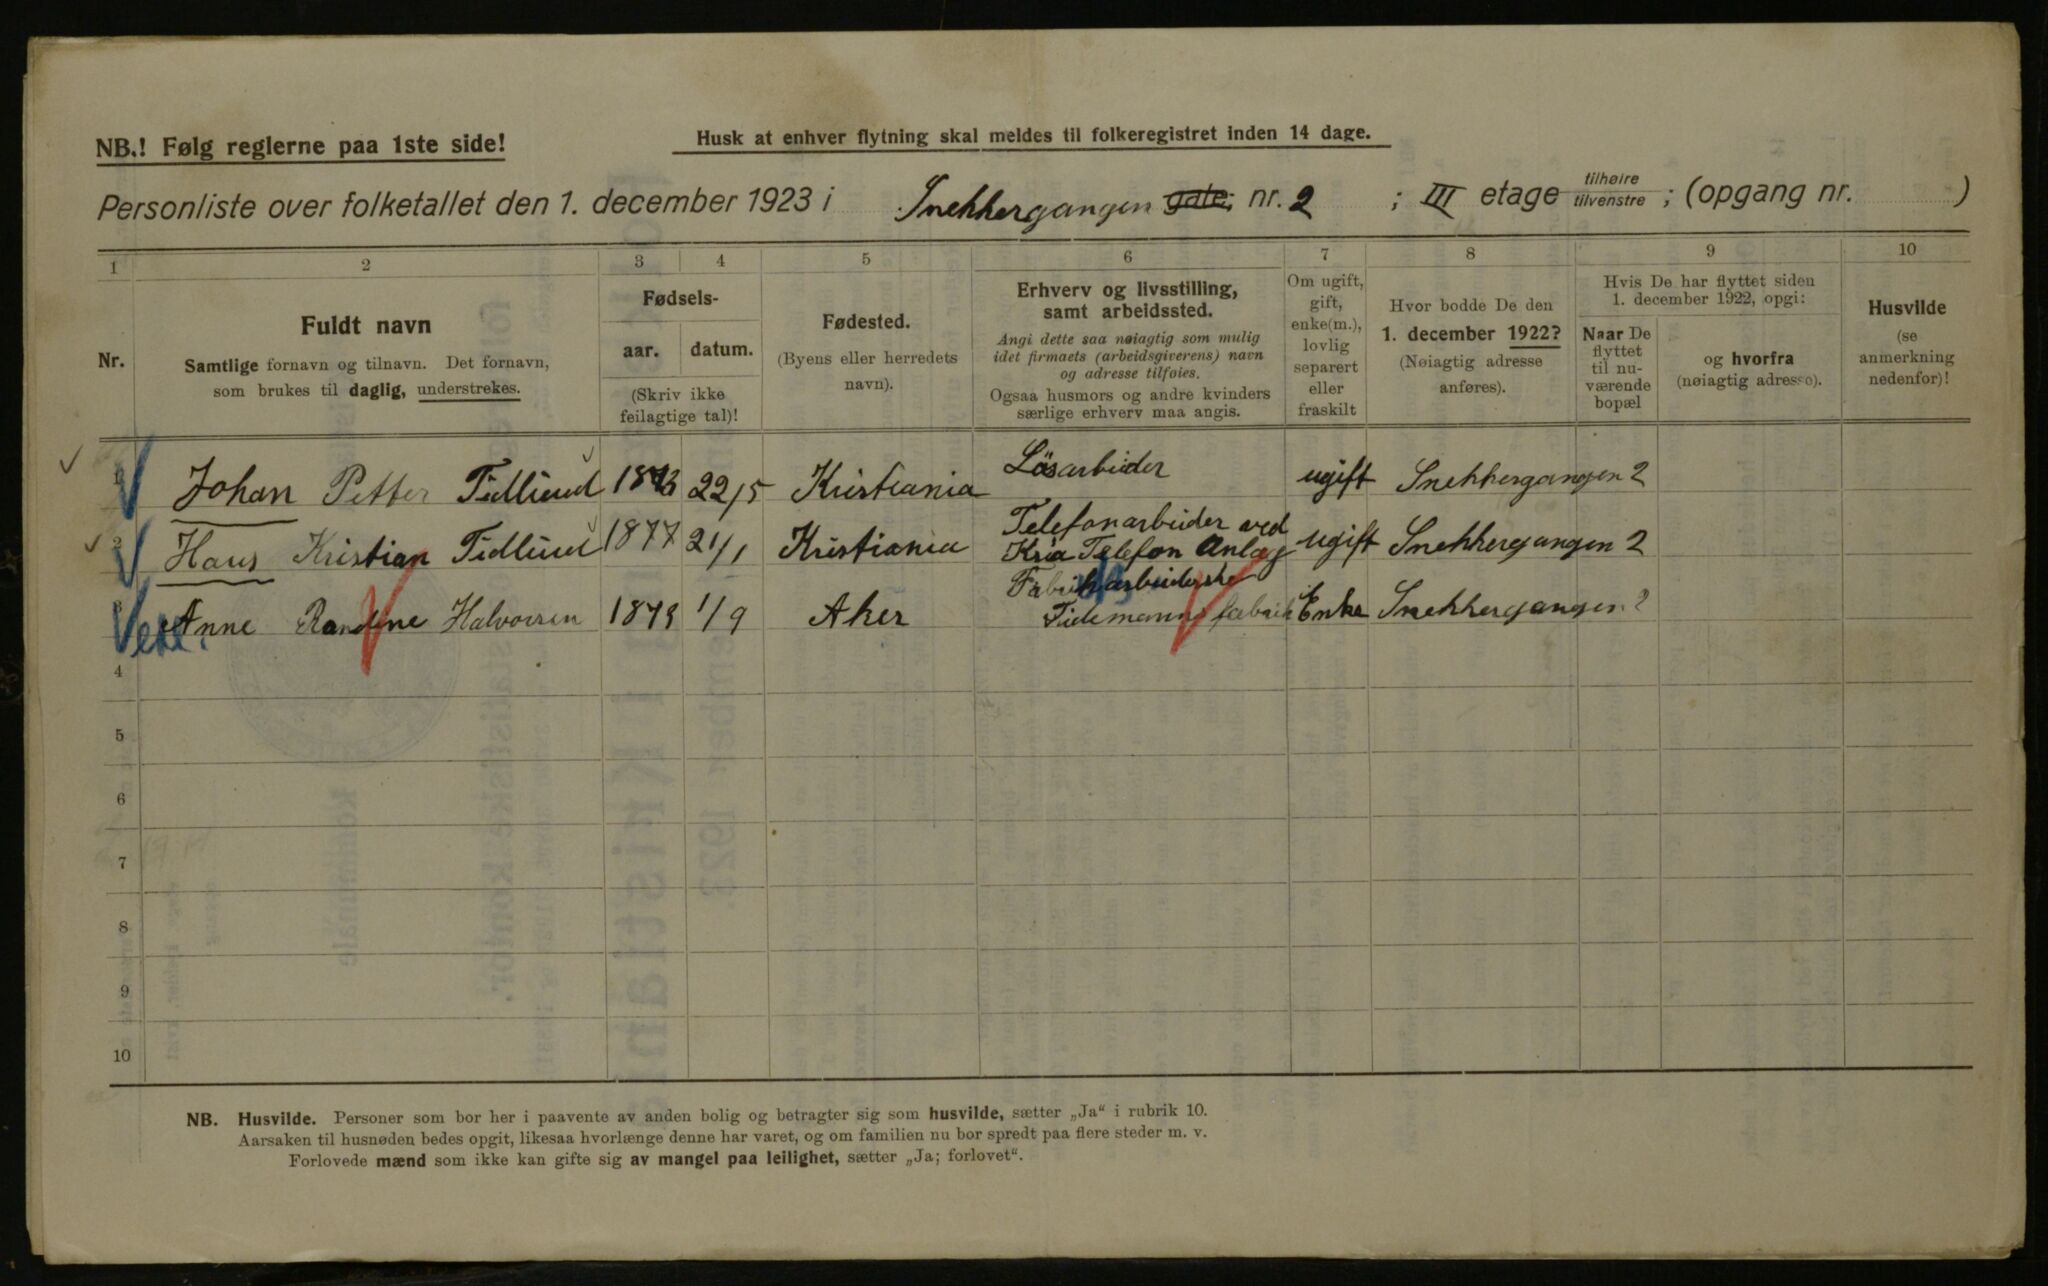 NB.! Følg reglerne paa 1ste side!
Husk at enhver flytning skal meldes til folkeregistret inden 14 dage.
Personliste over folketallet den 1. december 1923 i Snekkergangen gate, nr. 2 ; III etage tilhøire tilvenstre ; (opgang nr. )
1 2 3 4 5 6 7 8 9 10
Nr.
Fuldt navn
Samtlige fornavn og tilnavn. Det fornavn,
som brukes til daglig, understrekes.
Fødsels-
aar. datum.
(Skriv ikke
feilagtige tal)!
Fødested.
(Byens eller herredets
navn).
Erhverv og livsstilling,
samt arbeidssted.
Angi dette saa nøiagtig som mulig
idet firmaets (arbeidsgiverens) navn
og adresse tilføies.
Ogsaa husmors og andre kvinders
særlige erhverv maa angis.
Om ugift,
gift,
enke(m.),
lovlig
separert
eller
fraskilt
Hvor bodde De den
1. december 1922?
(Nøiagtig adresse
anføres).
Hvis De har flyttet siden
1. december 1922, opgi:
Naar De
flyttet
til nu-
værende
bopæl
og hvorfra
(nøiagtig adresse).
Husvilde
(se
anmerkning
nedenfor)!
1 Johan Petter Tidlund 1873 22/5 Kristiania Løsarbeider ugift Snekkergangen 2
2 Hans Kristian Tidlund 1877 21/1 Kristiania Telefonarbeider ved
Kria Telefon Anlæg ugift Snekkergangen 2
3 Anne Randine Halvorsen 1879 1/9 Aker Fabrikarbeiderske
Tidemanns fabrik Enke Snekkergangen 2
4
5
6
7
8
9
10
NB. Husvilde. Personer som bor her i paavente av anden bolig og betragter sig som husvilde, sætter „Ja“ i rubrik 10.
Aarsaken til husnøden bedes opgit, likesaa hvorlænge denne har varet, og om familien nu bor spredt paa flere steder m. v.
Forlovede mænd som ikke kan gifte sig av mangel paa leilighet, sætter „Ja; forlovet“.